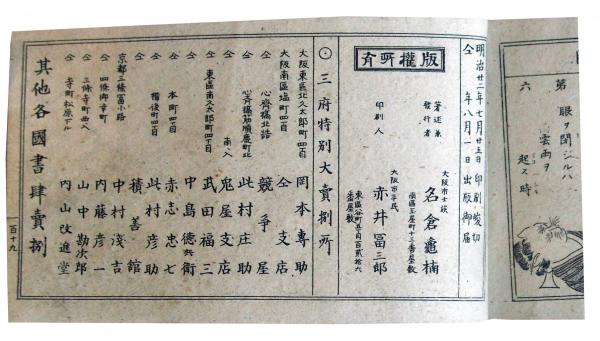 第六
眼ヲ閉ジルハ
雲雨ヲ
起ス時
明治廿二年七月廿五日印刷竣切
仝年八月一日出版御届
版權所有
著述兼
發行者
大阪市士族
名倉龜楠
南區玉屋町十三番屋敷
印刷人
大阪市平民
赤井冨三郎
東區谷町五丁目百貳拾六
番屋敷
⊙三府特別大賣捌所
大阪東區北久太郎町四丁目 岡本專助
大阪南區塩町四丁目 仝支店
仝 心齊橋北詰 競爭屋
仝 心齊橋筋順慶町北 此村庄助
仝 南へ入 鬼屋支店
東區南久太郎町四丁目 武田福三
中島徳兵衛
仝 本町四丁目 赤志忠七
仝 備後町四丁目 此村彦助
積善館
京都三條冨小路 中村淺吉
仝 四條御幸町 内藤彦一
仝 三條寺町西入 山中勘次郎
仝 寺町松原下ル 内山改進堂
其他各國書肆賣捌
百十九